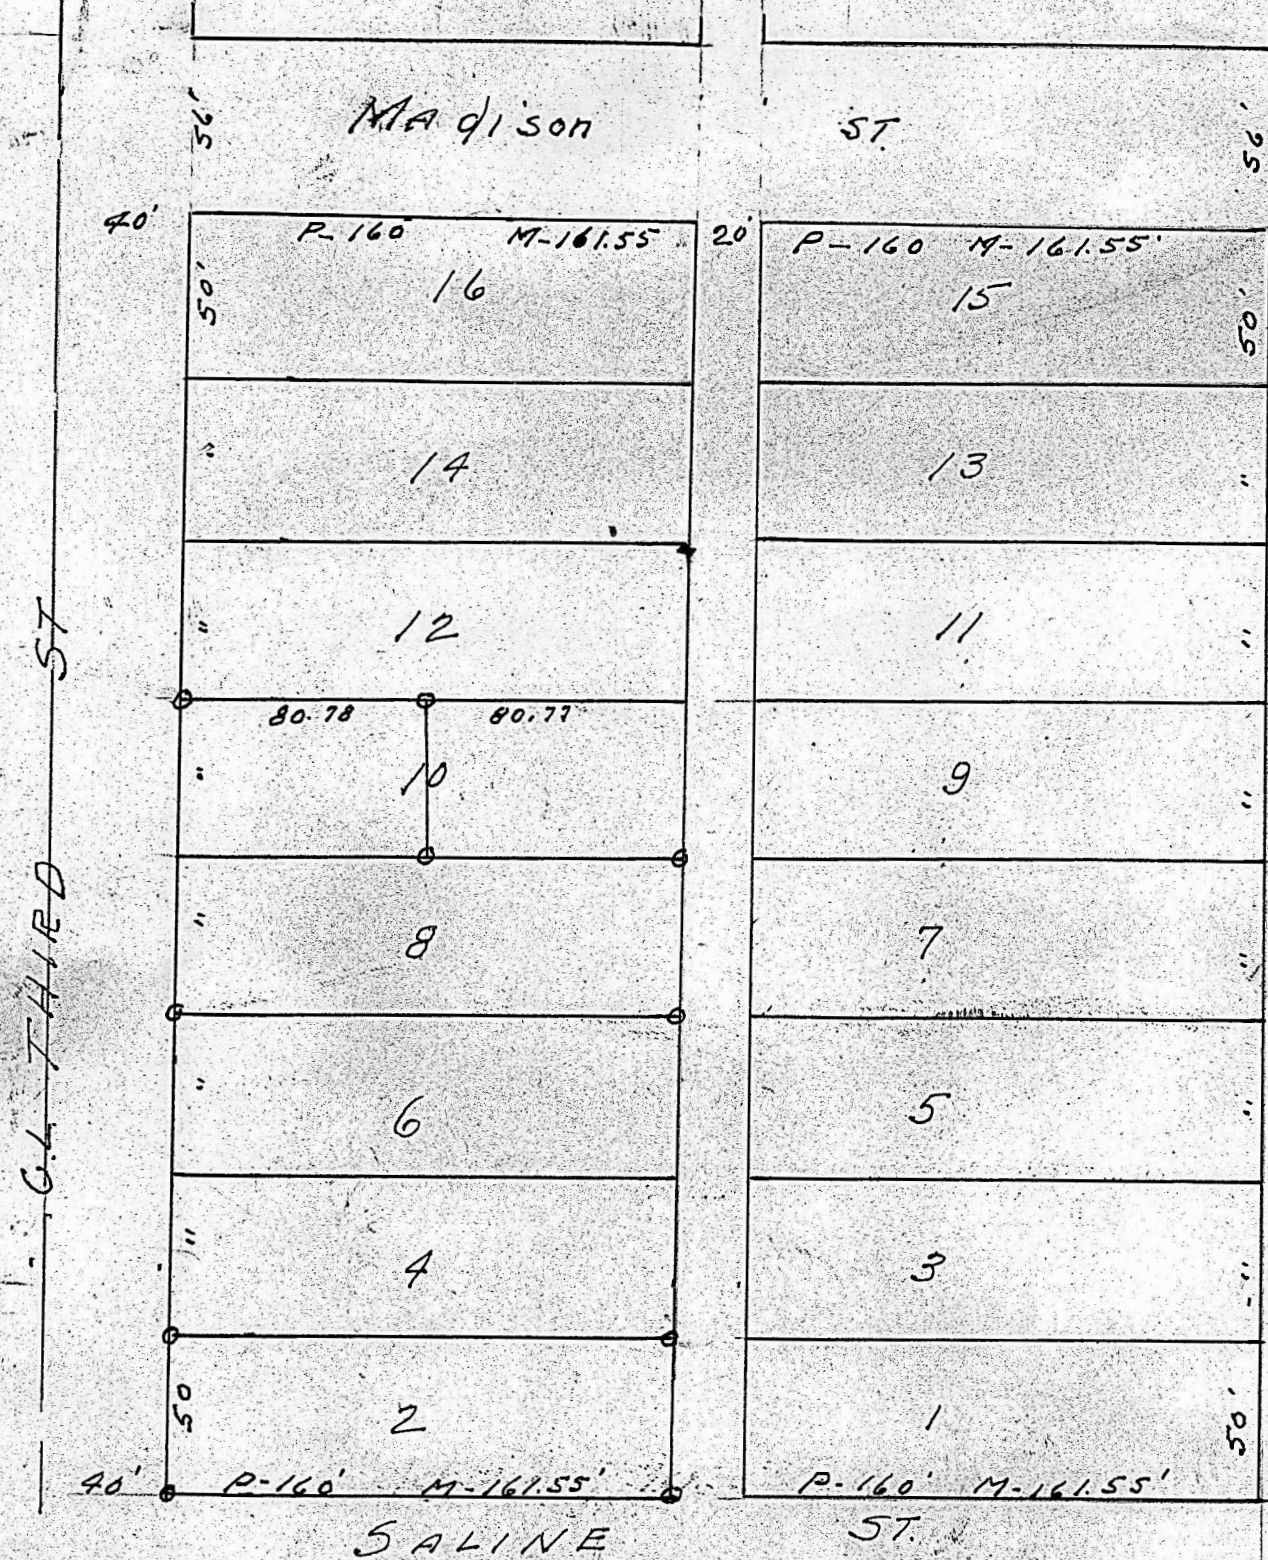 56' Madison ST. 56'
40' P-160 M-161.55 20' P-160 M-161.55'
50' 16 15 50'
" 14 13 "
" 12 11 "
80.78 80.77
" 10 9 "
" 8 7 "
" 6 5 "
" 4 3 "
50 2 1 50'
40' P-160' M-161.55' P-160' M-161.55'
SALINE ST.
C.L. THIRD ST